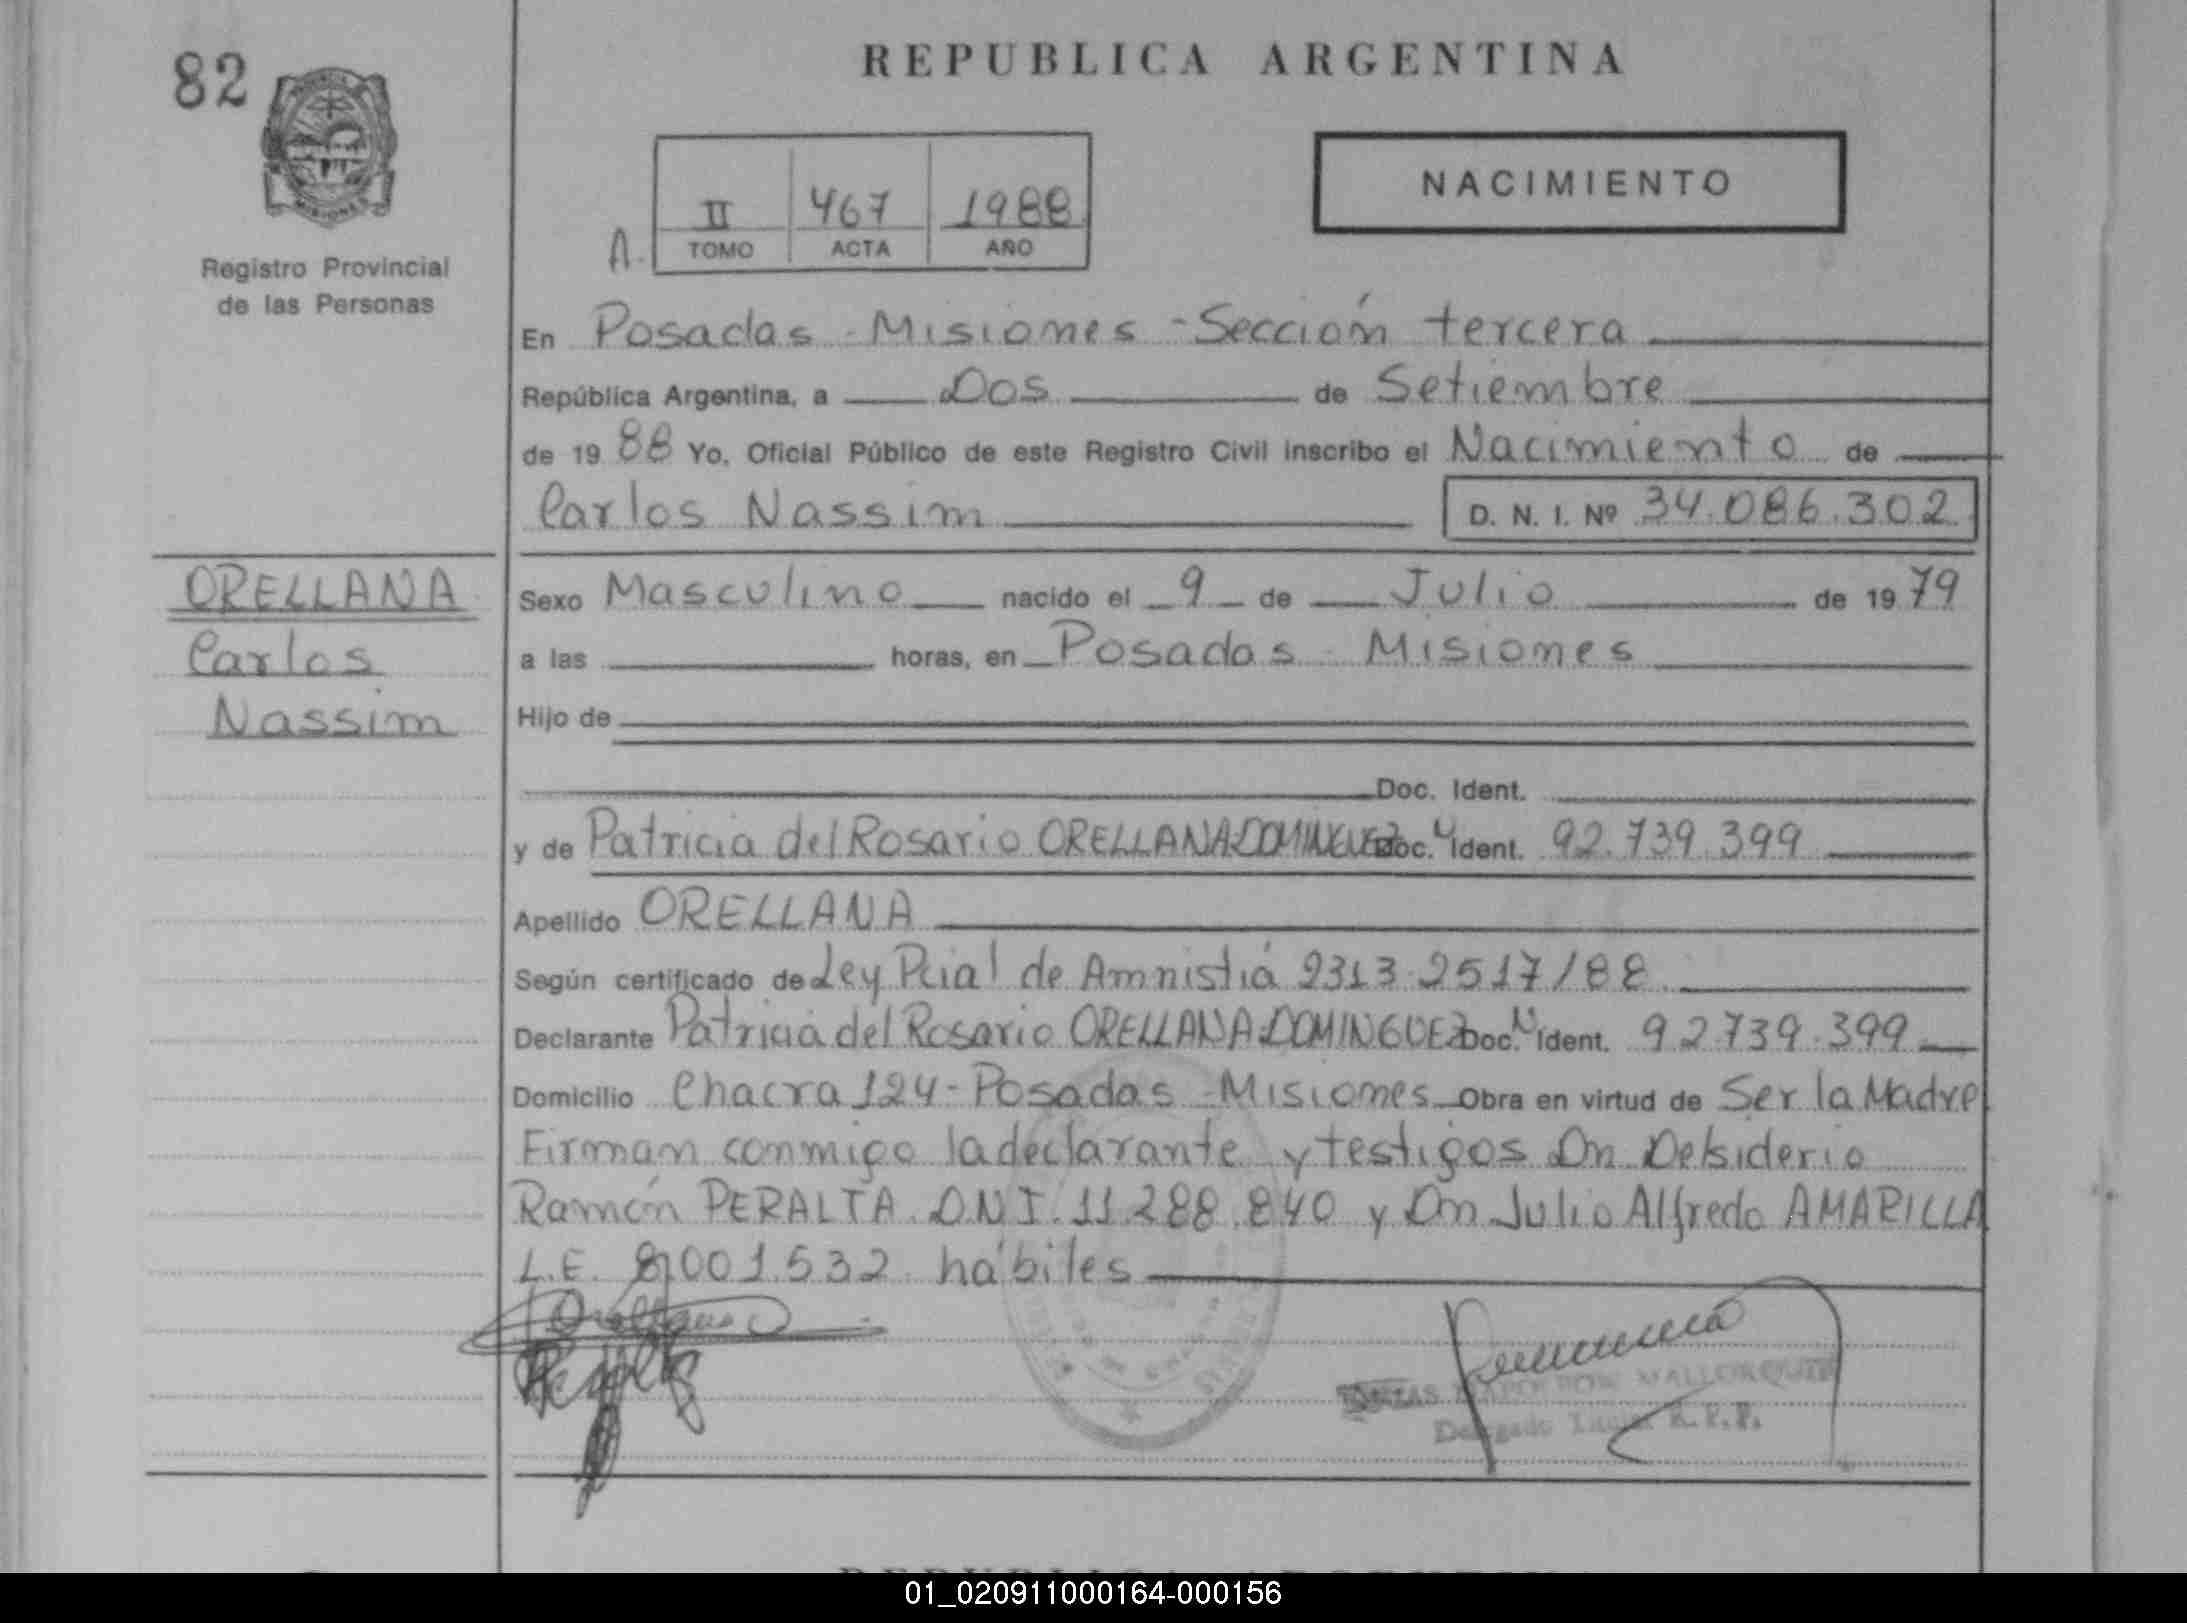 82
REPUBLICA ARGENTINA
NACIMIENTO
MISIONES
II 467 1988
A. TOMO ACTA AÑO
Registro Provincial
de las Personas
En Posadas - Misiones - Sección tercera
República Argentina, a Dos de Setiembre
de 19 88 Yo, Oficial Público de este Registro Civil inscribo el Nacimiento de
Carlos Nassim D. N. I. Nº 34.086.302
ORELLANA
Carlos
Nassim
Sexo Masculino nacido el 9 de Julio de 19 79
a las horas, en Posadas - Misiones
Hijo de
Doc. Ident.
y de Patricia del Rosario ORELLANA-DOMINGUEZ Doc. Ident. 92.739.399
Apellido ORELLANA
Según certificado de Ley Pcial de Amnistiá 2313-2517/88
Declarante Patricia del Rosario ORELLANA-DOMINGUEZ Doc. Ident. 92.739.399
Domicilio Chacra 124 - Posadas - Misiones Obra en virtud de Ser la Madre
Firman conmigo la declarante y testigos Dn Desiderio
Ramón PERALTA D.N.I. 11.288.840 y Dn Julio Alfredo AMARILLA
L.E. 8.001.532 hábiles
MALLORQUIN
Delegado R.P.P.
01_020911000164-000156